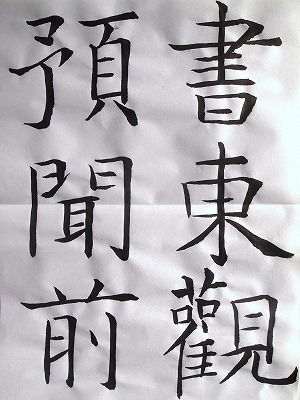 書東觀
預聞前